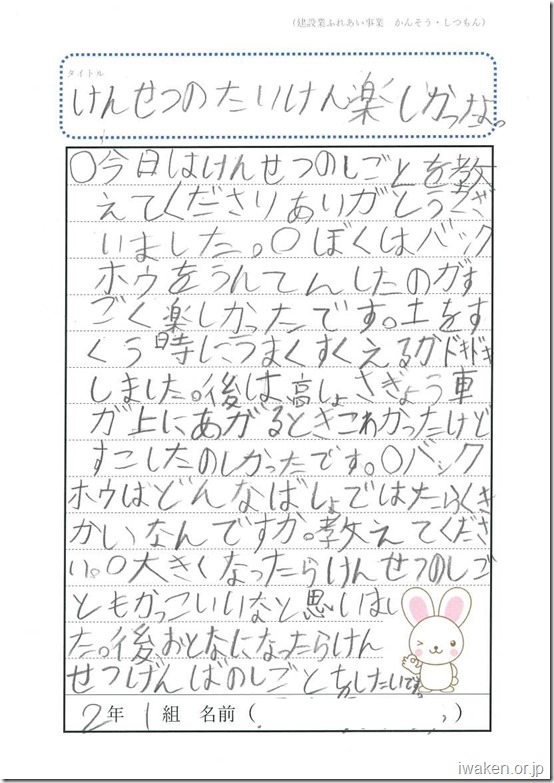 （建設業ふれあい事業　かんそう・しつもん）
タイトル
けんせつのたいけん楽しかったよ。
○今日はけんせつのしごとを教
えてくださりありがとうござ
いました。○ぼくはバック
ホウをうんてんしたのがす
ごく楽しかったです。土をす
くう時にうまくすくえるかドキドキ
しました。後は高しょさぎょう車
が上にあがるときこわかったけど
すこしたのしかったです。○バック
ホウはどんなばしょではたらくき
かいなんですか。教えてくださ
い。○大きくなったらけんせつのしご
ともかっこいいなと思いまし
た。後おとなになったらけん
せつげんばのしごとをしたいです。
2年 1組 名前（　　　）
iwaken.or.jp